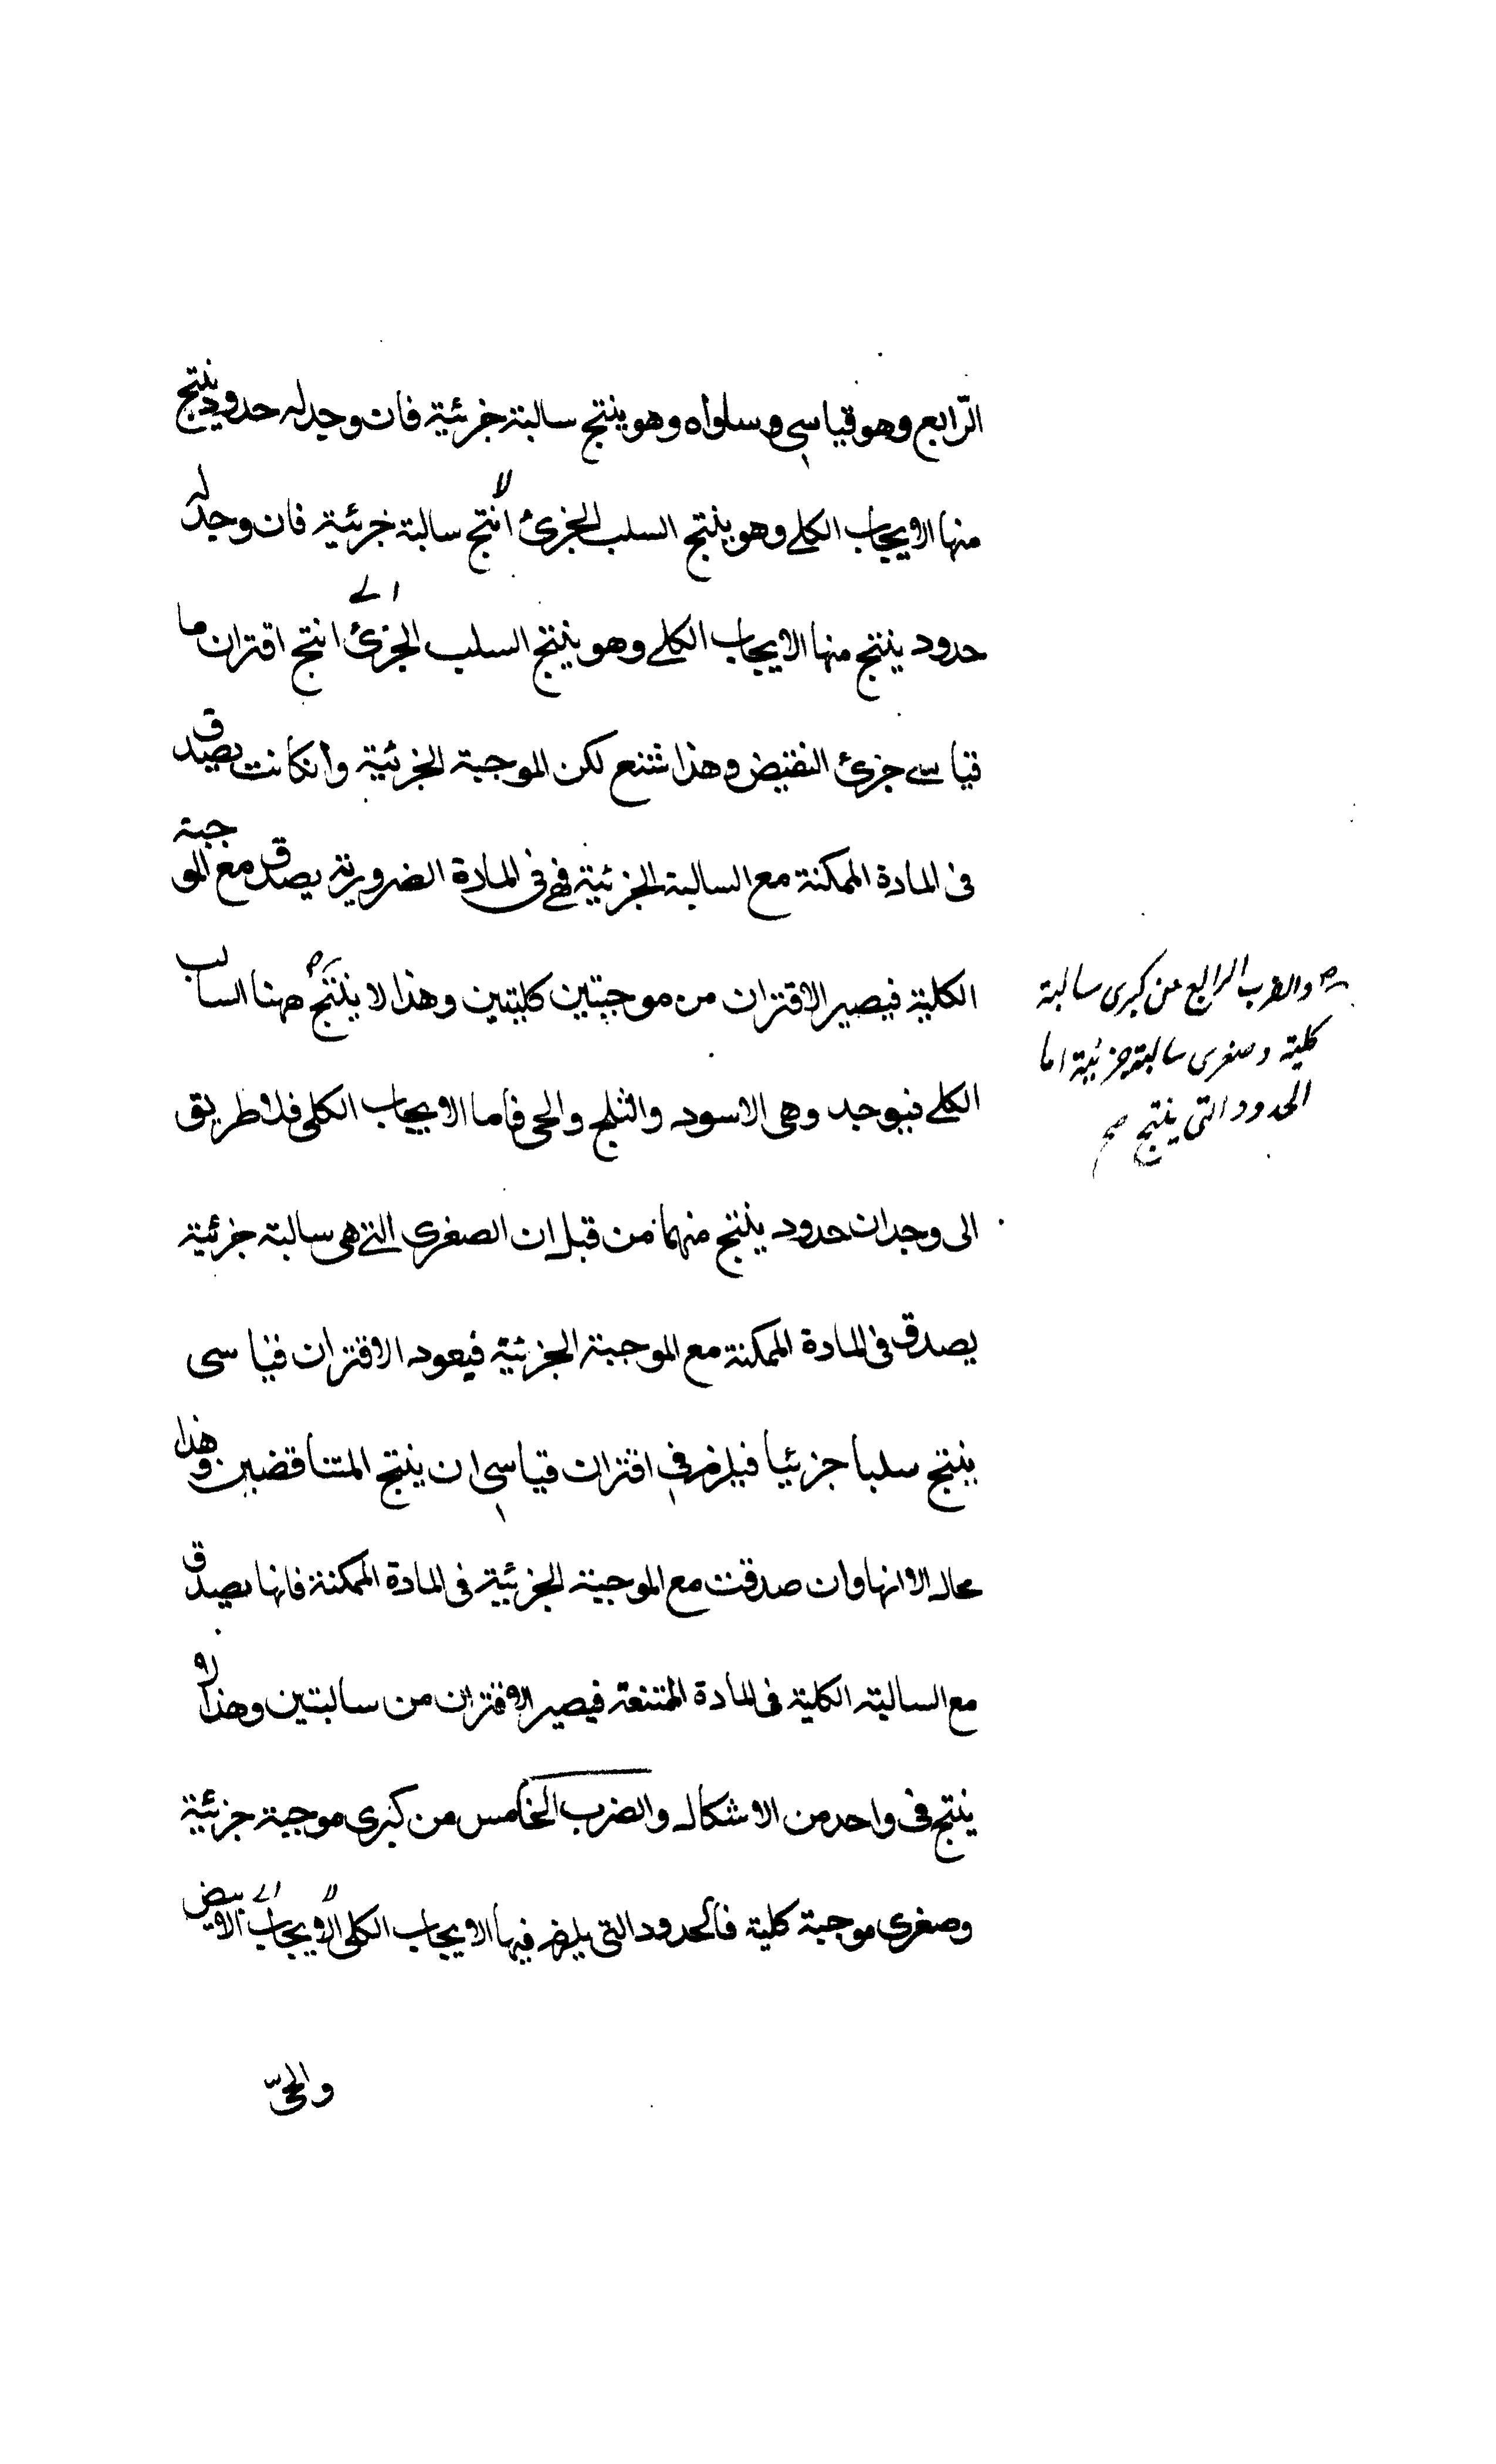 الرّابع وهو قياسى وسلواه وهو ينتج سالبة جزئية فان وجد له حدود ينتج
منها الايجاب الكلے وهو ينتج السلب الجزئ لا انتج سالبة جزئية فان وجد له
حدود ينتج منها الايجاب الكلے وهو ينتج السلب الجزئ الے انتج اقتران ما
قياسے جزئ النقيض وهذا شنع لكن الموجبة الجزئية وانكانت يصدق
فى المادة الممكنة مع السالبة الجزئية فهے فى المادة الضرورية يصدق مع الموجبة
الكلية فيصير الاقتران من موجبتين كليتين وهذا لا ينتج ههنا السالب
الكلے فيوجد وهى الاسود والثلج والحى فاما الايجاب الكلى فلا طريق
الى وجدان حدود ينتج منهما من قبل ان الصغرى التے هى سالبة جزئية
يصدق فى المادة الممكنة مع الموجبة الجزئية فيعود الاقتران قياسى
ينتج سلبا جزئيا فيلزم فى اقتران قياسى ان ينتج المتناقضين وهذا
محال الا انها وان صدقت مع الموجبة الجزئية فى المادة الممكنة فانها يصدق
مع السالبة الكلية فى المادة الممتنعة فيصير الاقتران من سالبتين وهذا لا
ينتج فى واحد من الاشكال والضرب الخامس من كبرى موجبة جزئية
وصغرى موجبة كلية فالحدود التى يلزم فيها الايجاب الكلى الايجاب الابيض
والحىّ
والضرب الرابع من كبرى سالبة
كلية وصغرى سالبة جزئية اما
الحدود التى ينتج صح